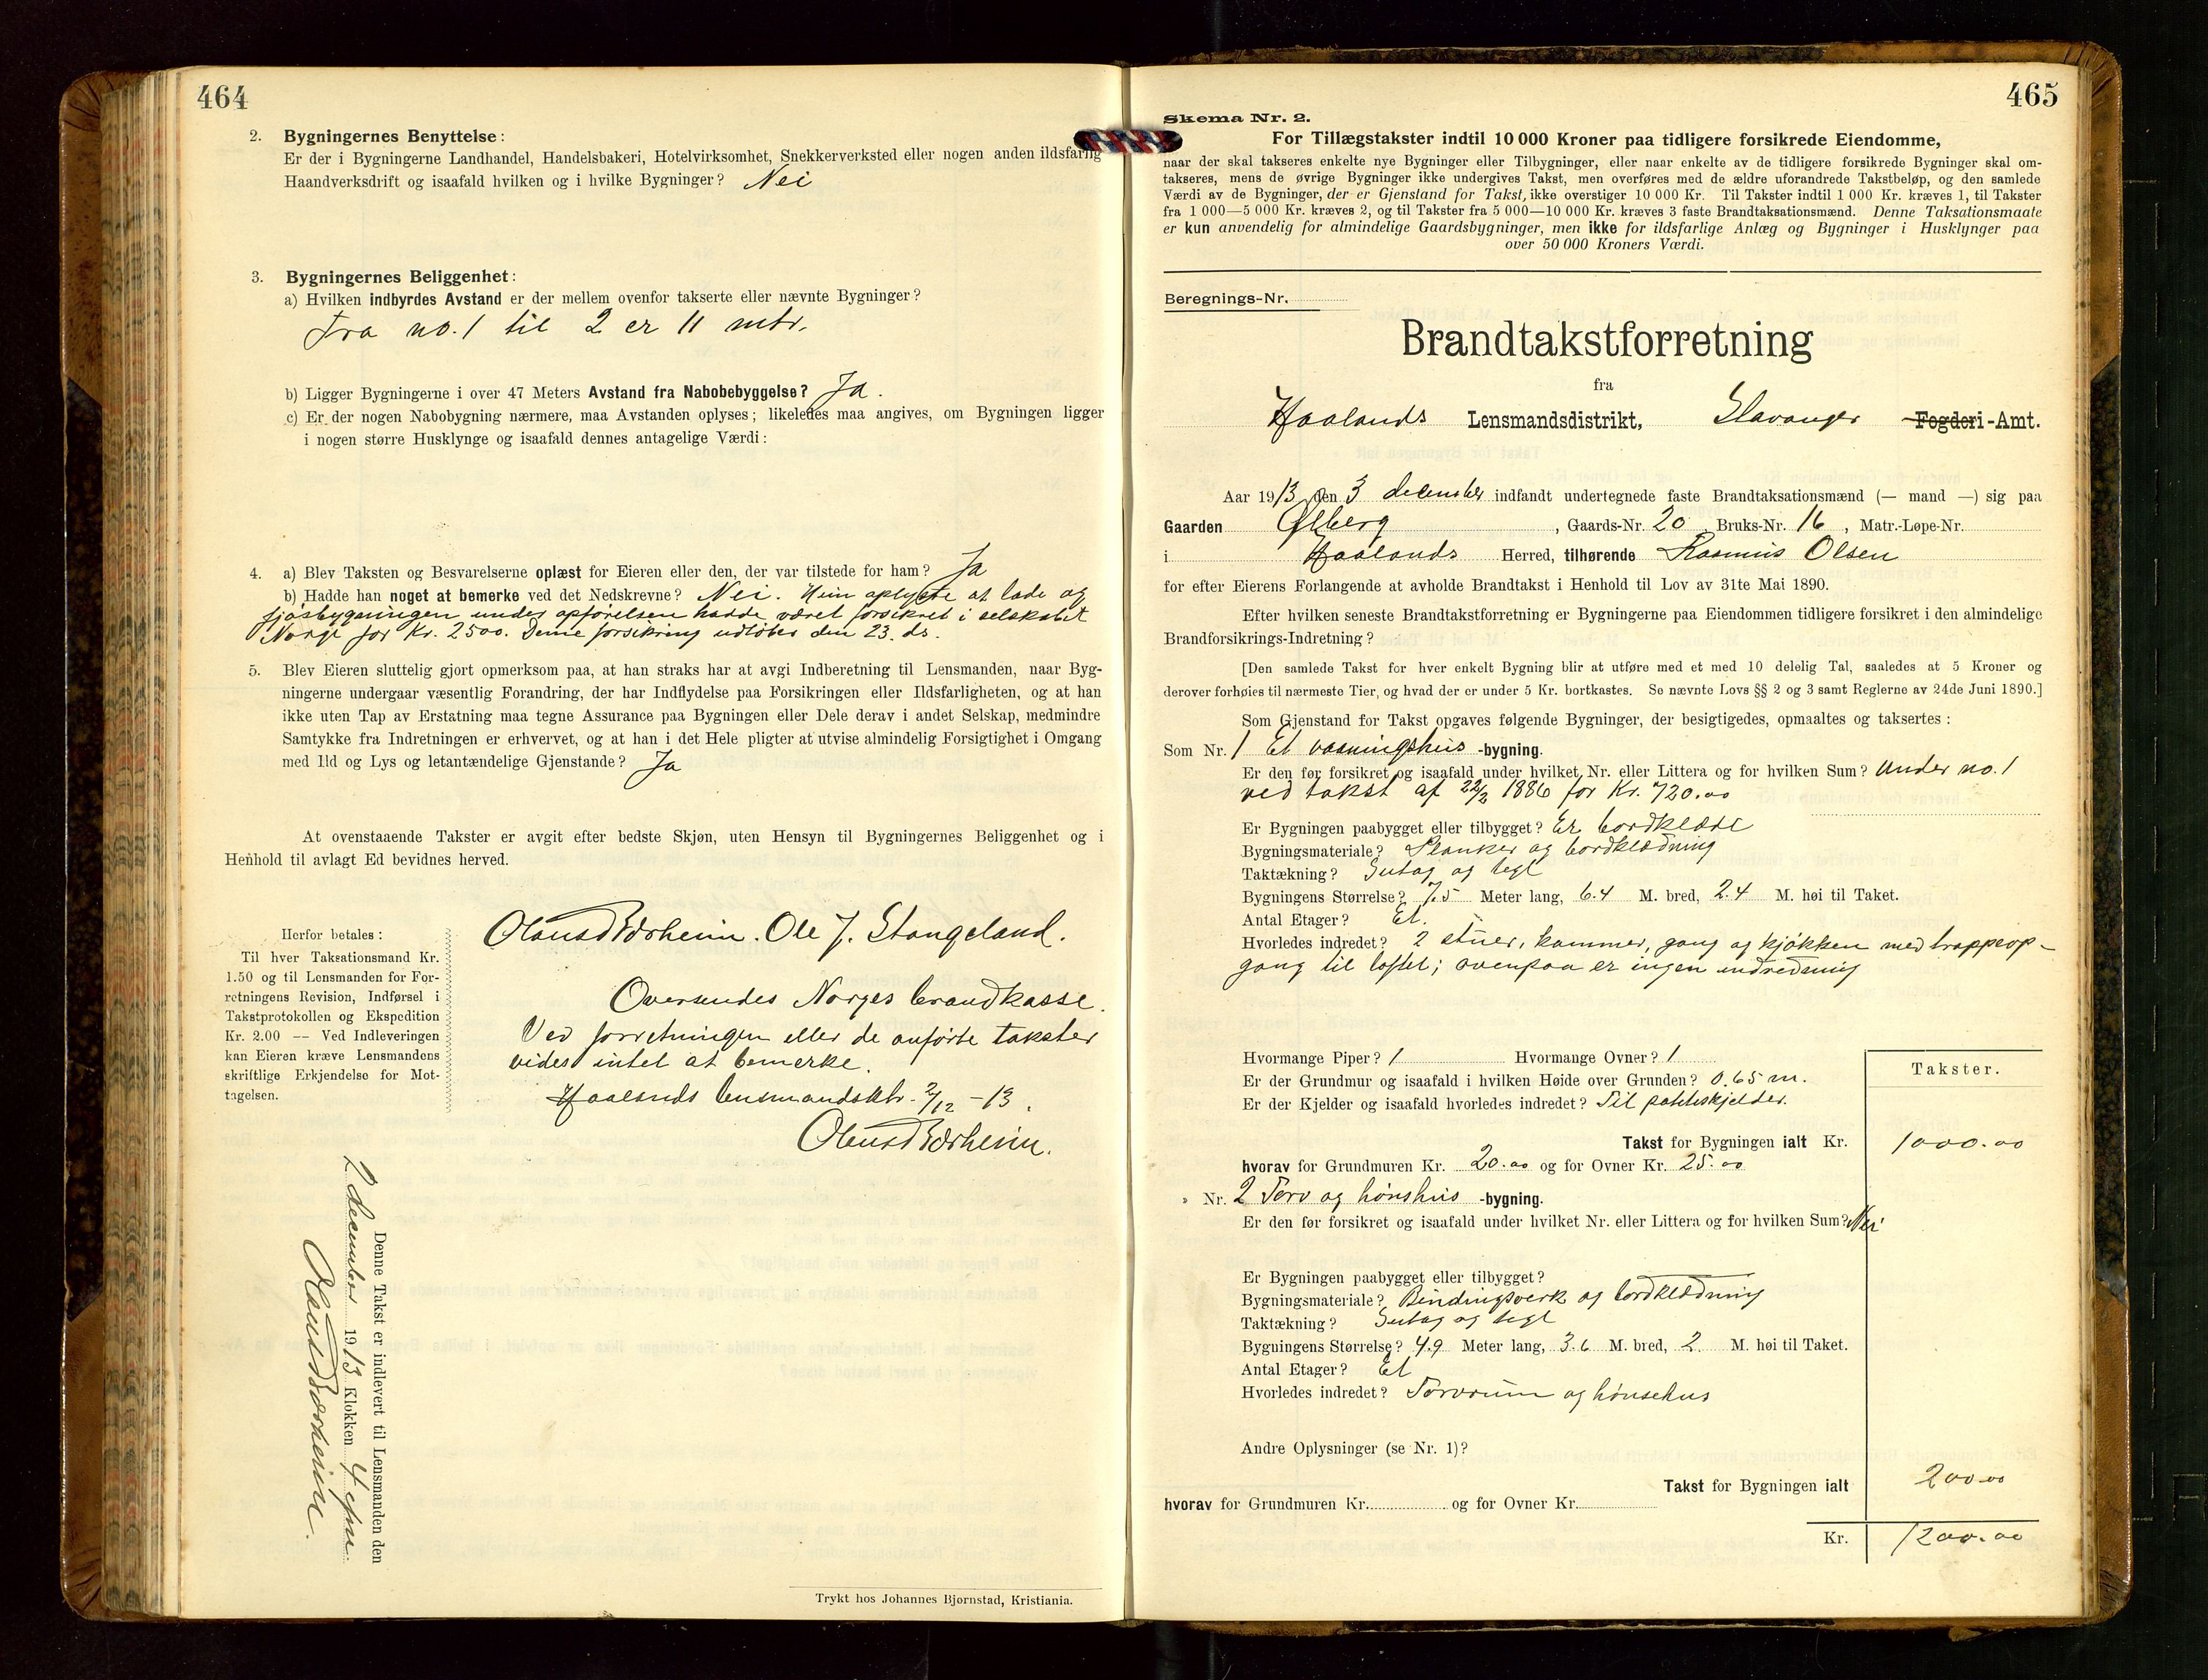 464
2. Bygningernes Benyttelse:
Er der i Bygningerne Landhandel, Handelsbakeri, Hotelvirksomhet, Snekkerverksted eller nogen anden ildsfarlig
Haandverksdrift og isaafald hvilken og i hvilke Bygninger? Nei
3. Bygningernes Beliggenhet:
a) Hvilken indbyrdes Avstand er der mellem ovenfor takserte eller nævnte Bygninger?
Fra no. 1 til 2 er 11 mtr.
b) Ligger Bygningerne i over 47 Meters Avstand fra Nabobebyggelse? Ja.
c) Er der nogen Nabobygning nærmere, maa Avstanden oplyses; likeledes maa angives, om Bygningen ligger
i nogen større Husklynge og isaafald dennes antagelige Værdi:
4. a) Blev Taksten og Besvarelserne oplæst for Eieren eller den, der var tilstede for ham? Ja
b) Hadde han noget at bemerke ved det Nedskrevne? Nei. Hun oplyste at lade og
fjøsbygningen under opførelsen hadde været forsikret i selskabet
Norge for Kr. 2500. Denne forsikring udløber den 23. ds.
5. Blev Eieren sluttelig gjort opmerksom paa, at han straks har at avgi Indberetning til Lensmanden, naar Byg-
ningerne undergaar væsentlig Forandring, der har Indflydelse paa Forsikringen eller Ildsfarligheten, og at han
ikke uten Tap av Erstatning maa tegne Assurance paa Bygningen eller Dele derav i andet Selskap, medmindre
Samtykke fra Indretningen er erhvervet, og at han i det Hele pligter at utvise almindelig Forsigtighet i Omgang
med Ild og Lys og letantændelige Gjenstande? Ja
At ovenstaaende Takster er avgit efter bedste Skjøn, uten Hensyn til Bygningernes Beliggenhet og i
Henhold til avlagt Ed bevidnes herved.
Olaus Børheim. Ole J. Stangeland.
Herfor betales:
Til hver Taksationsmand Kr.
1.50 og til Lensmanden for For-
retningens Revision, Indførsel i
Takstprotokollen og Ekspedition
Kr. 2.00 — Ved Indleveringen
kan Eieren kræve Lensmandens
skriftlige Erkjendelse for Mot-
tagelsen.
Oversendes Norges brandkasse.
Ved forretningen eller de anførte takster
vides intet at bemerke.
Haalands lensmandsktr. 2/12 -13.
Olaus Børheim.
Denne Takst er indlevert til Lensmanden den
2 december 1913 Klokken 4 efm.
Olaus Børheim.
Trykt hos Johannes Bjørnstad, Kristiania.
465
Skema Nr. 2.
For Tillægstakster indtil 10 000 Kroner paa tidligere forsikrede Eiendomme,
naar der skal takseres enkelte nye Bygninger eller Tilbygninger, eller naar enkelte av de tidligere forsikrede Bygninger skal om-
takseres, mens de øvrige Bygninger ikke undergives Takst, men overføres med de ældre uforandrede Takstbeløp, og den samlede
Værdi av de Bygninger, der er Gjenstand for Takst, ikke overstiger 10 000 Kr. Til Takster indtil 1 000 Kr. kræves 1, til Takster
fra 1 000—5 000 Kr. kræves 2, og til Takster fra 5 000—10 000 Kr. kræves 3 faste Brandtaksationsmænd. Denne Taksationsmaate
er kun anvendelig for almindelige Gaardsbygninger, men ikke for ildsfarlige Anlæg og Bygninger i Husklynger paa
over 50 000 Kroners Værdi.
Beregnings-Nr.
Brandtakstforretning
fra
Haalands Lensmandsdistrikt, Stavanger Fogderi-Amt.
Aar 1913 den 3 december indfandt undertegnede faste Brandtaksationsmænd (— mand —) sig paa
Gaarden Ølberg, Gaards-Nr. 20, Bruks-Nr. 16, Matr.-Løpe-Nr.
i Haalands Herred, tilhørende Rasmus Olsen
for efter Eierens Forlangende at avholde Brandtakst i Henhold til Lov av 31te Mai 1890.
Efter hvilken seneste Brandtakstforretning er Bygningerne paa Eiendommen tidligere forsikret i den almindelige
Brandforsikrings-Indretning?
[Den samlede Takst for hver enkelt Bygning blir at utføre med et med 10 delelig Tal, saaledes at 5 Kroner og
derover forhøies til nærmeste Tier, og hvad der er under 5 Kr. bortkastes. Se nævnte Lovs §§ 2 og 3 samt Reglerne av 24de Juni 1890.]
Som Gjenstand for Takst opgaves følgende Bygninger, der besigtigedes, opmaaltes og taksertes:
Som Nr. 1 Et vaaningshus -bygning.
Er den før forsikret og isaafald under hvilket Nr. eller Littera og for hvilken Sum? Under no. 1
ved takst af 22/2 1886 for Kr. 720.00
Er Bygningen paabygget eller tilbygget? Er bordklædt
Bygningsmateriale? Planker og bordklædning
Taktækning? Sutag og tegl
Bygningens Størrelse? 7.5 Meter lang, 6.4 M. bred, 2.4 M. høi til Taket.
Antal Etager? Et.
Hvorledes indredet? 2 stuer, kammer, gang og kjøkken med trappeop-
gang til loftet; ovenpaa er ingen indredning
Hvormange Piper? 1 Hvormange Ovner? 1
Er der Grundmur og isaafald i hvilken Høide over Grunden? 0.65 m.
Er der Kjelder og isaafald hvorledes indredet? Til potetiskjelder.
Takster.
Takst for Bygningen ialt Kr. 1000.00
hvorav for Grundmuren Kr. 20.00 og for Ovner Kr. 25.00
» Nr. 2 Torv og hønshus -bygning.
Er den før forsikret og isaafald under hvilket Nr. eller Littera og for hvilken Sum? Nei
Er Bygningen paabygget eller tilbygget?
Bygningsmateriale? Bindingsverk og bordklædning
Taktækning? Sutag og tegl
Bygningens Størrelse? 4.9 Meter lang, 3.6 M. bred, 2 M. høi til Taket.
Antal Etager? Et
Hvorledes indredet? Torvrum og hønsehus
Andre Oplysninger (se Nr. 1)?
Takst for Bygningen ialt 200.00
hvorav for Grundmuren Kr. og for Ovner Kr.
Kr. 1200.00